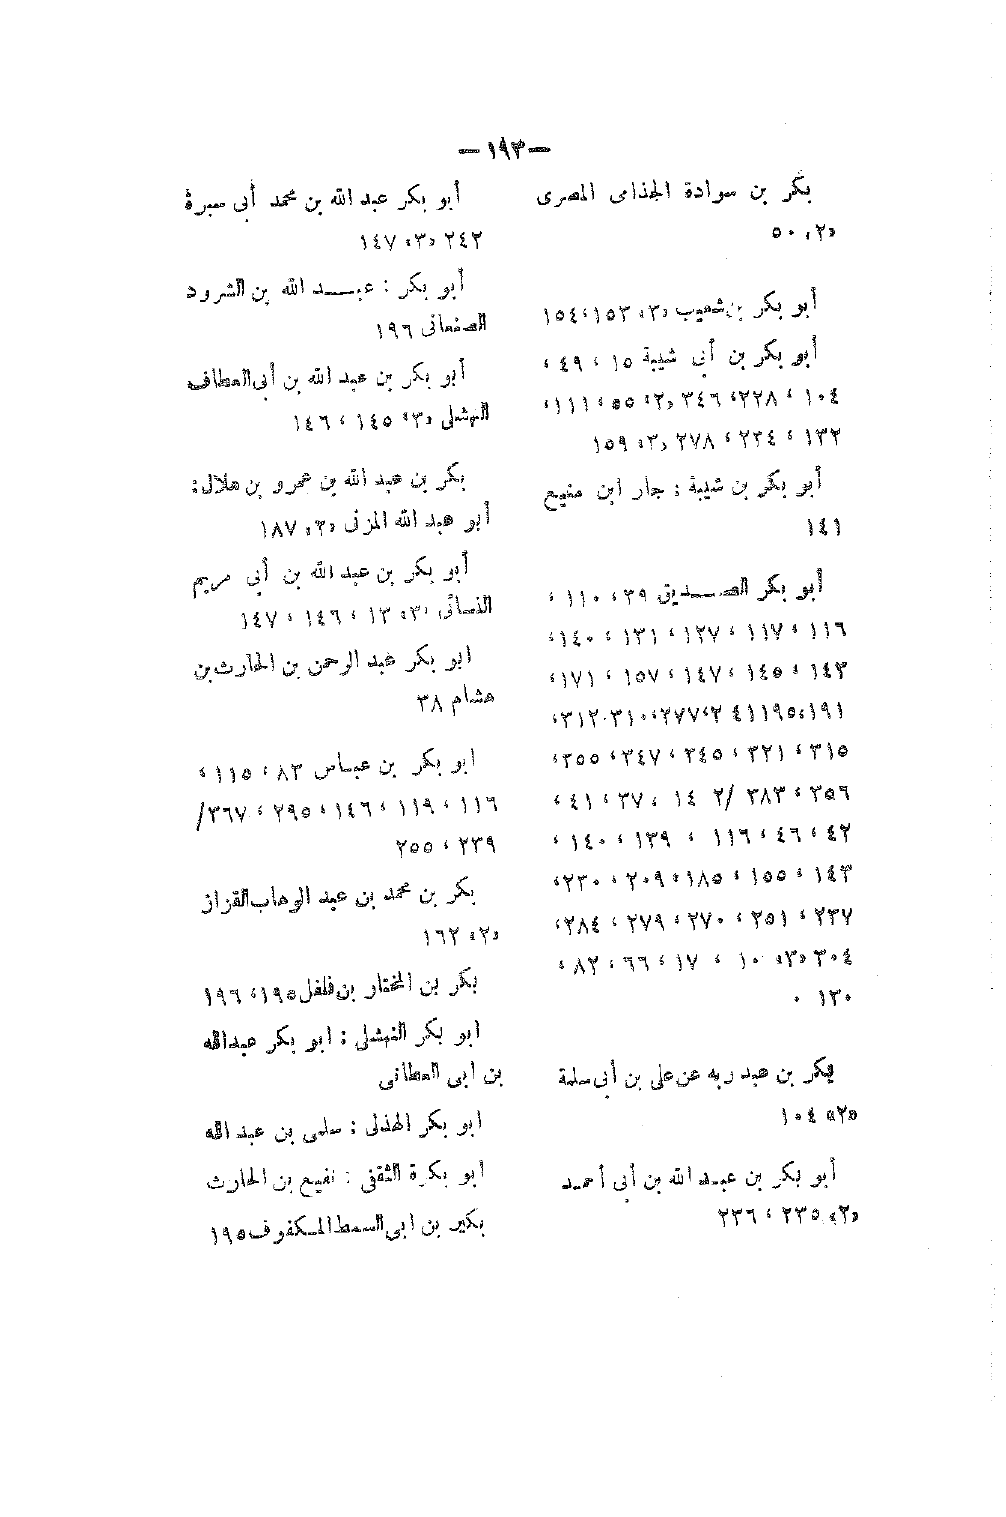 — ١٩٣ —
بكر بن سوادة الجذامى المصرى
«٢» ٥٠
أبو بكر بن شعيب «٣» ١٥٣، ١٥٤
أبو بكر بن أبى شيبة ١٥ ، ٤٩ ،
١٠٤ ، ٢٢٨، ٣٤٦ «٢» ٥٥ ، ١١١،
١٣٢ ، ٢٣٤ ، ٢٧٨ «٣» ١٥٩
أبو بكر بن شيبة : جار ابن منيع
١٤١
أبو بكر الصـــديق ٣٩ ، ١١٠ ،
١١٦ ، ١١٧ ، ١٢٧ ، ١٣١ ، ١٤٠،
١٤٣ ، ١٤٥ ، ١٤٧ ، ١٥٧ ، ١٧١،
١٩١، ١٩٥ ٢٤١١، ٢٧٧، ٣١٠-٣١٢،
٣١٥ ، ٣٢١ ، ٣٤٥ ، ٣٤٧ ، ٣٥٥،
٣٥٦ ، ٣٨٣ /٢ ١٤ ، ٣٧ ، ٤١ ،
٤٢ ، ٤٦ ، ١١٦ ، ١٣٩ ، ١٤٠ ،
١٤٣ ، ١٥٥ ، ١٨٥، ٢٠٩ ، ٢٣٠،
٢٣٧ ، ٢٥١ ، ٢٧٠ ، ٢٧٩ ، ٢٨٤،
٣٠٤ «٣» ١٠ ، ١٧ ، ٦٦ ، ٨٢ ،
١٣٠ .
بكر بن عبد ربه عن على بن أبى سلمة
«٢» ١٠٤
أبو بكر بن عبـد الله بن أبى أحمـد
«٢» ٢٣٥ ، ٢٣٦
أبو بكر عبد الله بن محمد أبى سبرة
٢٤٢ «٣» ١٤٧
أبو بكر : عبـــد الله بن الشرود
الصنعانى ١٩٦
أبو بكر بن عبد الله بن أبى العطاف
النهشلى «٣» ١٤٥ ، ١٤٦
بكر بن عبد الله بن عمرو بن هلال:
أبو عبد الله المزنى «٣» ١٨٧
أبو بكر بن عبد الله بن أبى مريم
الغسانى «٣» ١٣ ، ١٤٦ ، ١٤٧
ابو بكر عبد الرحمن بن الحارث بن
هشام ٣٨
ابو بكر بن عباس ٨٣ ، ١١٥ ،
١١٦ ، ١١٩ ، ١٤٦ ، ٢٩٥ ، ٣٦٧/
٢٣٩ ، ٢٥٥
بكر بن محمد بن عبد الوهاب القزاز
«٢» ١٦٢
بكر بن المختار بن فلفل ١٩٥، ١٩٦
ابو بكر النهشلى : ابو بكر عبدالله
بن ابى العطانى
ابو بكر الهذلى : سلمى بن عبد الله
أبو بكرة الثقفى : نفيع بن الحارث
بكير بن ابى السمط المـكفوف ١٩٥